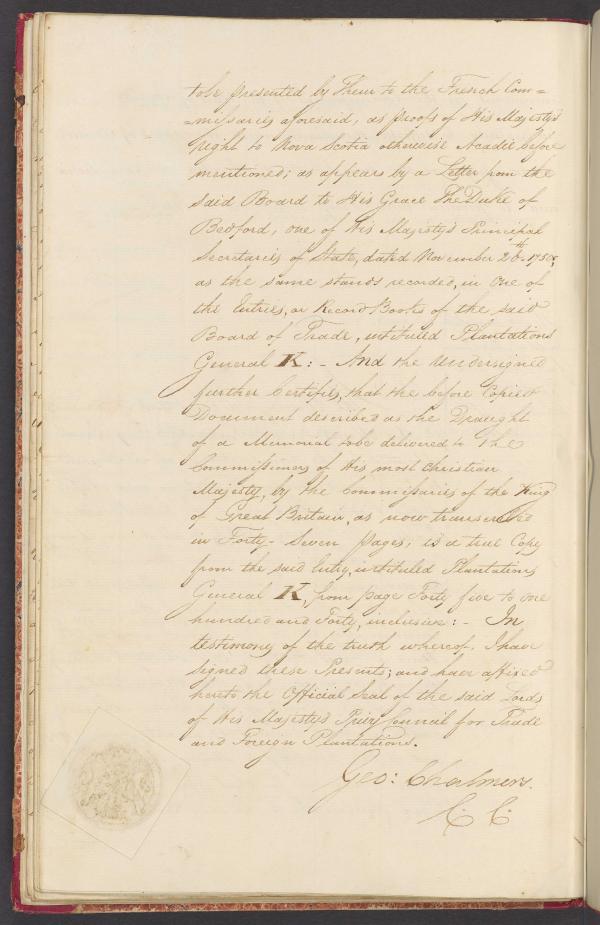 tobe presented by Them to the French Com=
=missaries aforesaid, as proofs of His Majesty's
right to Nova Scotia otherwise Acadie before
mentioned; as appears by a Letter from the
said Board to His Grace The Duke of
Bedford, one of His Majesty's Principal
Secretaries of State, dated November 2th. 1750;
as the same stands recorded, in One of
the Entries, or Record Books of the said
Board of Trade, intituled Plantations
General K: - And the Undersigned
further Certifies, that the before Copied
Document described as the Draught
of a Memorial tobe delivered to The
Commissioners of His most Christian
Majesty, by the Commissaries of the King
of Great Britain, as now transcribed
in Forty-Seven pages; is a true Copy
from the said Entry, intituled Plantations
General K, from page Forty five to one
hundred and Forty, inclusive: - In
testimony of the truth whereof, I have
signed these Presents; and have affixed
hereto the Official Seal of the said Lords
of His Majesty's Privy Council for Trade
and Foreign Plantations.
Geo: Chalmers.
C: C: